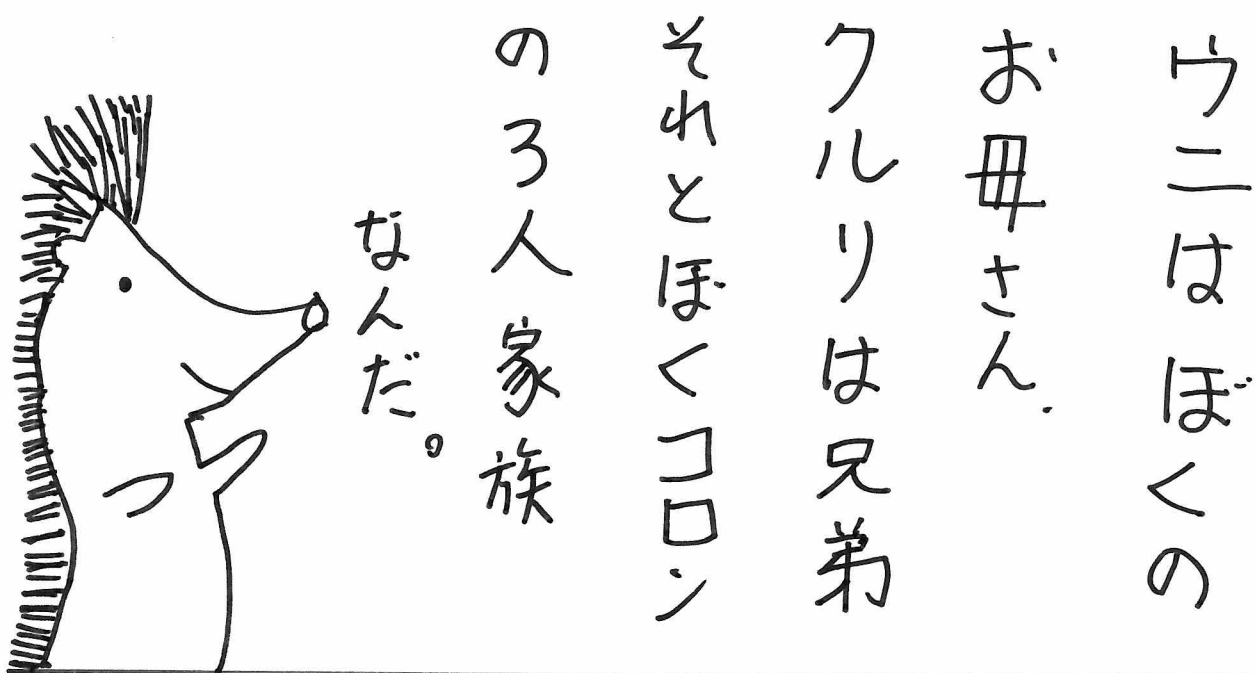 ウニはぼくの
お母さん.
クルリは兄弟
それとぼくコロン
の3人家族
なんだ。